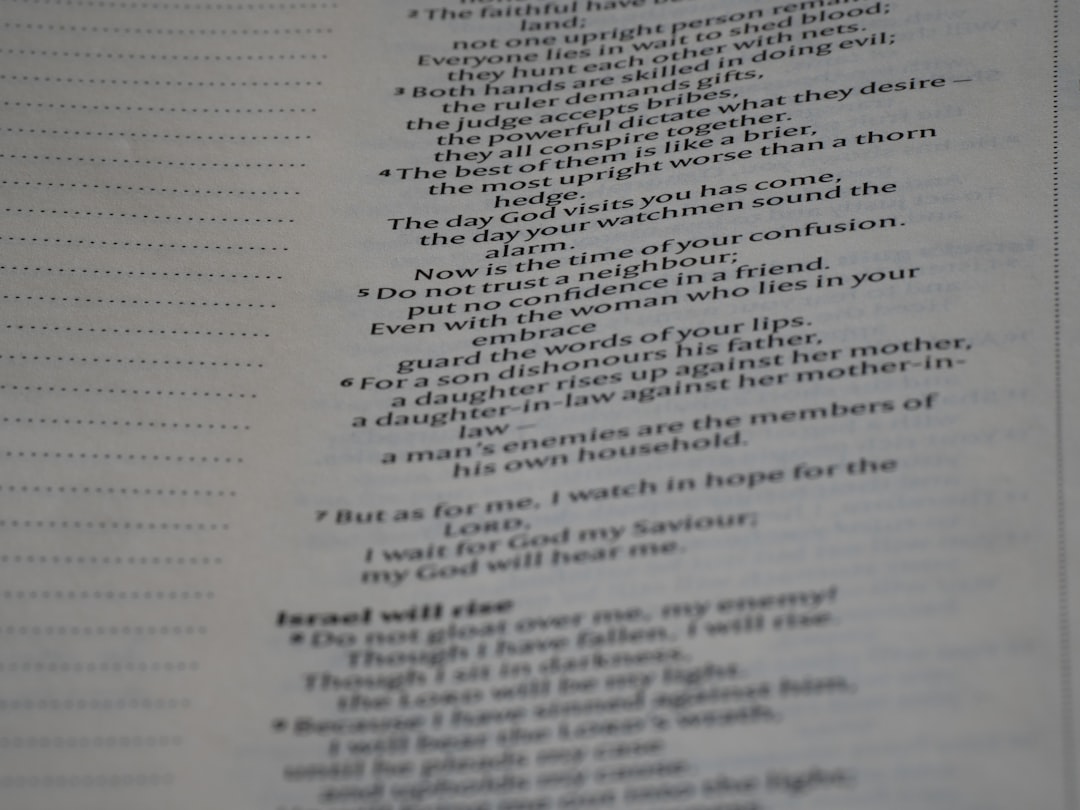 ² The faithful have
land;
not one upright person
Everyone lies in wait to shed blood;
they hunt each other with nets.
³ Both hands are skilled in doing evil;
the ruler demands gifts,
the judge accepts bribes,
the powerful dictate what they desire –
they all conspire together.
⁴ The best of them is like a brier,
the most upright worse than a thorn
hedge.
The day God visits you has come,
the day your watchmen sound the
alarm.
Now is the time of your confusion.
⁵ Do not trust a neighbour;
put no confidence in a friend.
Even with the woman who lies in your
embrace
guard the words of your lips.
⁶ For a son dishonours his father,
a daughter rises up against her mother,
a daughter-in-law against her mother-in-
law –
a man's enemies are the members of
his own household.
⁷ But as for me, I watch in hope for the
LORD,
I wait for God my Saviour;
my God will hear me.
Israel will rise
⁸ Do not gloat over me, my enemy!
Though I have fallen, I will rise.
Though I sit in darkness,
the LORD will be my light.
⁹ Because I have sinned against him,
I will bear the LORD's wrath,
until he pleads my case
and upholds my cause.